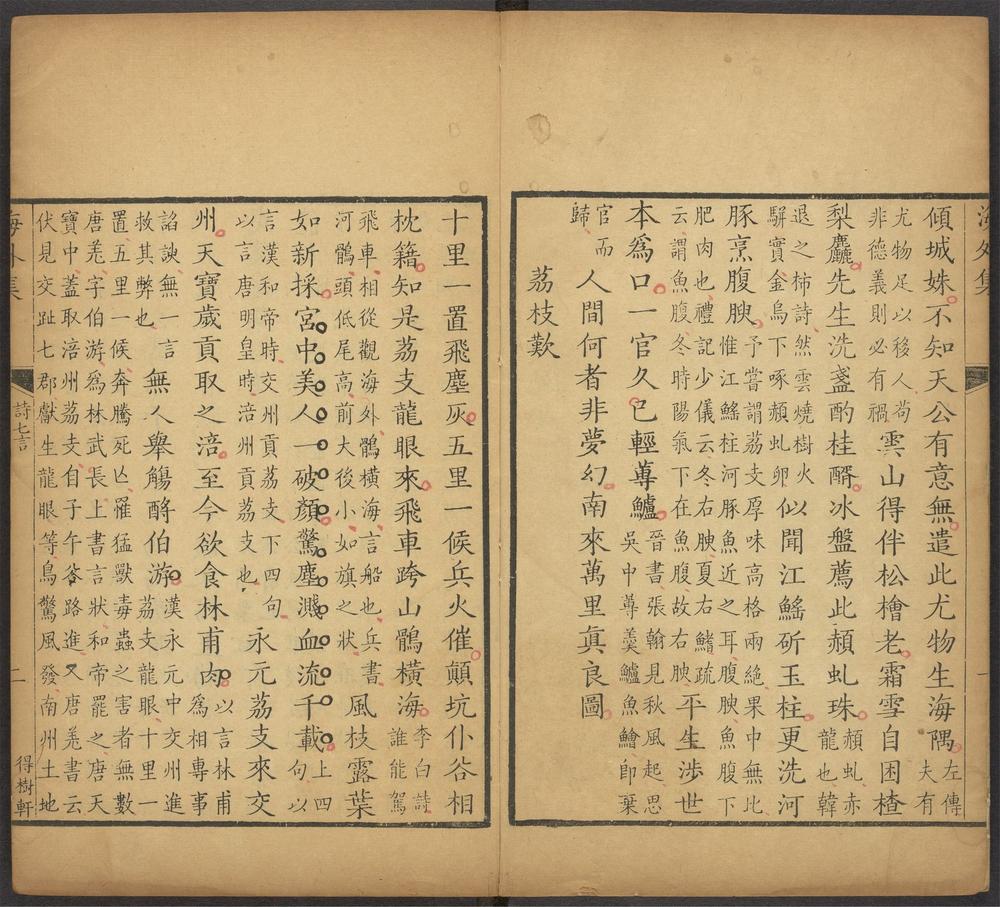 海外集
一
傾城姝不知天公有意無遣此尤物生海隅左傳
夫有
尤物足以移人茍
非德義則必有禍雲山得伴松檜老霜雪自困樝
梨麤先生洗盞酌桂醑冰盤薦此頳虬珠頳虬赤
龍也韓
退之柿詩然雲燒樹火
駢實金烏下啄頳虬卵似聞江鰩斫玉柱更洗河
豚烹腹腴予嘗謂荔支厚味高格兩絶果中無比
惟江鰩柱河豚魚近之耳腹腴魚腹下
肥肉也禮記少儀云冬右腴夏右鰭疏
云謂魚腹冬時陽氣下在魚腹故右腴平生涉世
本爲口一官久已輕蓴鱸晉書張翰見秋風起思
吳中蓴羹鱸魚鱠即棄
官而
歸人間何者非夢幻南來萬里眞良圖
荔枝歎
十里一置飛塵灰五里一候兵火催顛坑仆谷相
枕籍知是荔支龍眼來飛車跨山鶻橫海李白詩
誰能駕
飛車相從觀海外鶻橫海言船也兵書
河鶻頭低尾高前大後小如旗之狀風枝露葉
如新採宮中美人一破顏驚塵濺血流千載上四
句以
言漢和帝時交州貢荔支下四句
以言唐明皇時涪州貢荔支也永元荔支來交
州天寶歲貢取之涪至今欲食林甫肉以言林甫
爲相專事
諂諛無一言
救其弊也無人舉觴酹伯游漢永元中交州進
荔支龍眼十里一
置五里一候奔騰死亡罹猛獸毒蟲之害者無數
唐羌字伯游爲林武長上書言狀和帝罷之唐天
寶中蓋取涪州荔支自子午谷路進又唐羌書云
伏見交趾七郡獻生龍眼等鳥驚風發南州土地
海外集
詩七言
二
得樹軒